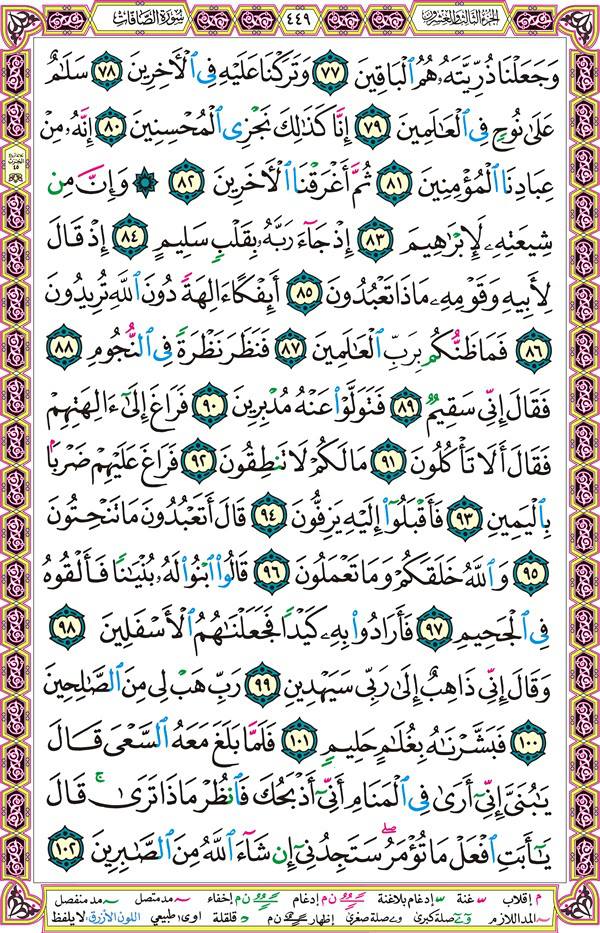 الجزء الثالث والعشرون ٤٤٩ سورة الصافات
وَجَعَلْنَا ذُرِّيَّتَهُۥ هُمُ ٱلْبَاقِينَ ٧٧ وَتَرَكْنَا عَلَيْهِ فِى ٱلْأَخِرِينَ ٧٨ سَلَٰمٌ
عَلَىٰ نُوحٍ فِى ٱلْعَٰلَمِينَ ٧٩ إِنَّا كَذَٰلِكَ نَجْزِى ٱلْمُحْسِنِينَ ٨٠ إِنَّهُۥ مِنْ
عِبَادِنَا ٱلْمُؤْمِنِينَ ٨١ ثُمَّ أَغْرَقْنَا ٱلْأَخَرِينَ ٨٢ ۞ وَإِنَّ مِن
شِيعَتِهِۦ لَإِبْرَٰهِيمَ ٨٣ إِذْ جَآءَ رَبَّهُۥ بِقَلْبٍ سَلِيمٍ ٨٤ إِذْ قَالَ
لِأَبِيهِ وَقَوْمِهِۦ مَاذَا تَعْبُدُونَ ٨٥ أَئِفْكًا ءَالِهَةً دُونَ ٱللَّهِ تُرِيدُونَ
٨٦ فَمَا ظَنُّكُم بِرَبِّ ٱلْعَٰلَمِينَ ٨٧ فَنَظَرَ نَظْرَةً فِى ٱلنُّجُومِ ٨٨
فَقَالَ إِنِّى سَقِيمٌ ٨٩ فَتَوَلَّوْا۟ عَنْهُ مُدْبِرِينَ ٩٠ فَرَاغَ إِلَىٰٓ ءَالِهَتِهِمْ
فَقَالَ أَلَا تَأْكُلُونَ ٩١ مَا لَكُمْ لَا تَنطِقُونَ ٩٢ فَرَاغَ عَلَيْهِمْ ضَرْبًۢا
بِٱلْيَمِينِ ٩٣ فَأَقْبَلُوٓا۟ إِلَيْهِ يَزِفُّونَ ٩٤ قَالَ أَتَعْبُدُونَ مَا تَنْحِتُونَ
٩٥ وَٱللَّهُ خَلَقَكُمْ وَمَا تَعْمَلُونَ ٩٦ قَالُوا۟ ٱبْنُوا۟ لَهُۥ بُنْيَٰنًا فَأَلْقُوهُ
فِى ٱلْجَحِيمِ ٩٧ فَأَرَادُوا۟ بِهِۦ كَيْدًا فَجَعَلْنَٰهُمُ ٱلْأَسْفَلِينَ ٩٨
وَقَالَ إِنِّى ذَاهِبٌ إِلَىٰ رَبِّى سَيَهْدِينِ ٩٩ رَبِّ هَبْ لِى مِنَ ٱلصَّٰلِحِينَ
١٠٠ فَبَشَّرْنَٰهُ بِغُلَٰمٍ حَلِيمٍ ١٠١ فَلَمَّا بَلَغَ مَعَهُ ٱلسَّعْىَ قَالَ
يَٰبُنَىَّ إِنِّىٓ أَرَىٰ فِى ٱلْمَنَامِ أَنِّىٓ أَذْبَحُكَ فَٱنظُرْ مَاذَا تَرَىٰ ۚ قَالَ
يَٰٓأَبَتِ ٱفْعَلْ مَا تُؤْمَرُ ۖ سَتَجِدُنِىٓ إِن شَآءَ ٱللَّهُ مِنَ ٱلصَّٰبِرِينَ ١٠٢